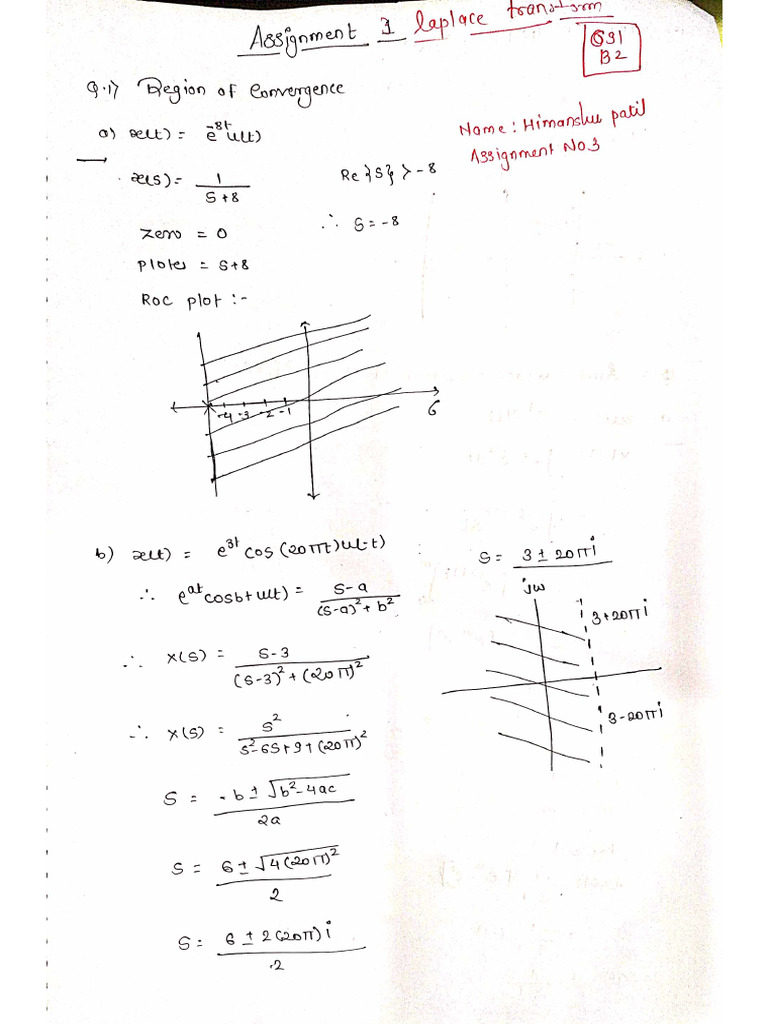 Assignment 3 laplace transform
G31
B2
Q.1) Region of Convergence
Name: Himanshu patil
Assignment No.3
a) x(t) = e^-8t u(t)
x(s) = 1/(s+8)
Re{s} > -8
∴ s = -8
zero = 0
plotes = s+8
Roc plot :-
-4 -3 -2 -1
σ
b) x(t) = e^3t cos(20πt)u(-t)
∴ e^at cosbt u(t) = (s-a)/((s-a)^2 + b^2)
∴ x(s) = (s-3)/((s-3)^2 + (20π)^2)
∴ x(s) = s^2/(s^2-6s+9+(20π)^2)
s = (-b ± √(b^2-4ac))/2a
s = (6 ± √(4(20π)^2))/2
s = (6 ± 2(20π)i)/2
s = 3 ± 20πi
jω
3+20πi
3-20πi